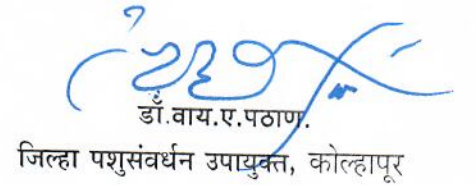 डॉ.वाय.ए.पठाण.
जिल्हा पशुसंवर्धन उपायुक्त, कोल्हापूर